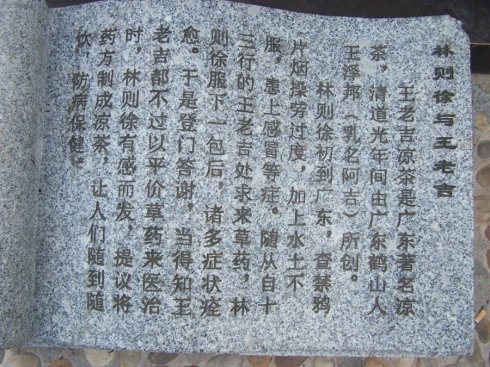 林则徐与王老吉
王老吉凉茶是广东著名凉
茶，清道光年间由广东鹤山人
王泽邦（乳名阿吉）所创。
林则徐初到广东，查禁鸦
片烟操劳过度，加上水土不
服，患上感冒等症。随从自十
三行的王老吉处求来草药，林
则徐服下一包后，诸多症状痊
愈。于是登门答谢，当得知王
老吉都不过以平价草药来医治
时，林则徐有感而发，提议将
药方制成凉茶，让人们随到随
饮，防病保健。